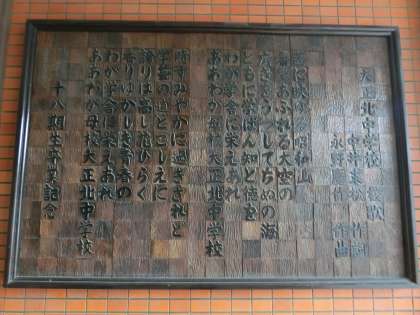 大正北中学校 校歌
中井末松 作詞
永野慶作 作曲
に映ゆる昭和山
あふれる大空の
ちぬの海
ともに学ばん知と徳を
わが学舎に栄えあれ
ああわが母校大正北中学校
時すみやかに過ぎされど
学芸の道とこしえに
誇りは高し花ひらく
香りはかしき青春の
わが学舎に栄えあれ
ああわが母校大正北中学校
十八期生卒業記念